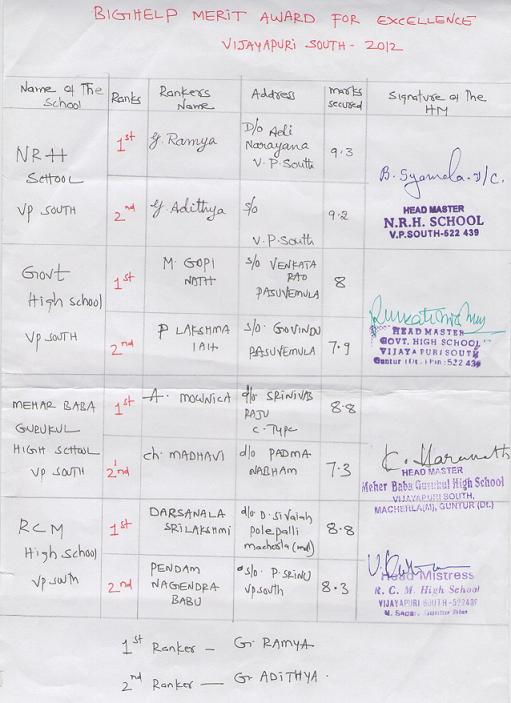 BIGHELP MERIT AWARD FOR EXCELLENCE
VIJAYAPURI SOUTH - 2012
Name of The School Ranks Rankers Name Address marks secured Signature of The HM
NRH School VP SOUTH
1st G. Ramya D/o Adi Narayana V.P. South 9.3
2nd G. Adithya S/o V.P. South 9.2
B. Syamala. I/C.
HEAD MASTER
N.R.H. SCHOOL
V.P.SOUTH-522 439
Govt High school VP SOUTH
1st M. GOPI NATH S/o VENKATA RAO PASUVEMULA 8
2nd P LAKSHMA IAH S/o. GOVINDU PASUVEMULA 7.9
HEAD MASTER
GOVT. HIGH SCHOOL
VIJAYA PURI SOUTH
Guntur (Dt.) Pin: 522 439
MEHAR BABA GURUKUL HIGH SCHOOL VP SOUTH
1st A. MOWNICA d/o SRINIVAS RAJU C-Type 8.8
2nd ch. MADHAVI d/o PADMA NABHAM 7.3
HEAD MASTER
Meher Baba Gurukul High School
VIJAYAPURI SOUTH,
MACHERLA(M), GUNTUR (Dt.)
RCM High school VP South
1st DARSANALA SRILAKSHMI d/o D. Sivaiah Polepalli macherla (md) 8.8
2nd PENDAM NAGENDRA BABU S/o. P. SRINU VP South 8.3
Head Mistress
R. C. M. High School
VIJAYAPURI SOUTH-522439
N. Sagar, Guntur Dist
1st Ranker - G. RAMYA
2nd Ranker — G. ADITHYA.